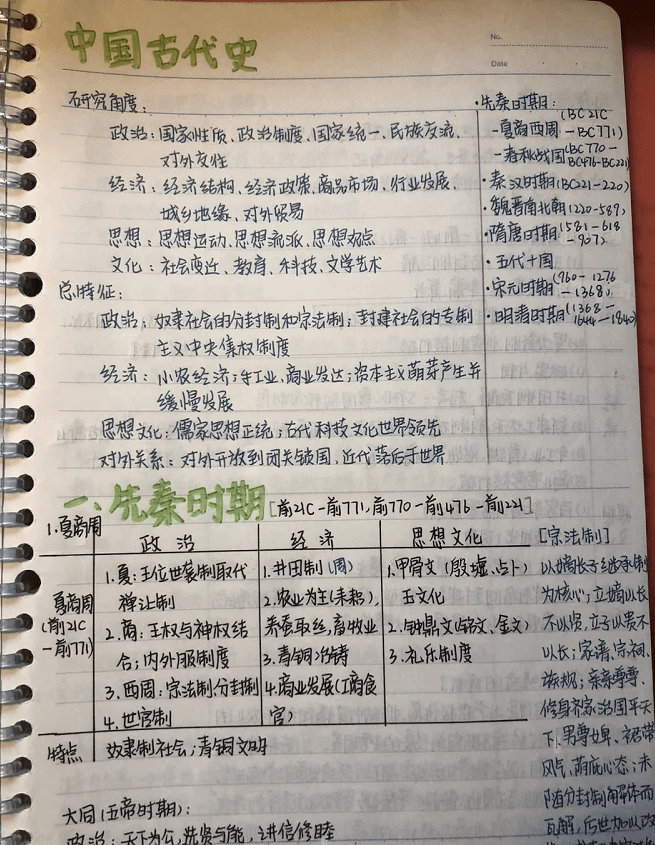 中国古代史
No.
Date
研究角度：
政治：国家性质、政治制度、国家统一、民族交流、
对外交往
经济：经济结构、经济政策、商品市场、行业发展、
城乡地缘、对外贸易
思想：思想运动、思想流派、思想观点
文化：社会变迁、教育、科技、文学艺术
总特征：
政治：奴隶社会的分封制和宗法制；封建社会的专制
主义中央集权制度
经济：小农经济；手工业、商业发达；资本主义萌芽产生并
缓慢发展
思想文化：儒家思想正统；古代科技文化世界领先
对外关系：对外开放到闭关锁国，近代落后于世界
·先秦时期：
-夏商西周(BC21C
-BC771)
-春秋战国(BC770-
BC476-BC221)
·秦汉时期(BC221-220)
·魏晋南北朝(220-589)
·隋唐时期(581-618
-907)
·五代十国
·宋元时期(960-1276
-1368)
·明清时期(1368-
1644-1840)
一、先秦时期[前21C-前771,前770-前476-前221]
1.夏商周
政治
经济
思想文化
夏商周
(前21C
-前771)
1.夏：王位世袭制取代
禅让制
2.商：王权与神权结
合；内外服制度
3.西周：宗法制分封制
4.世官制
1.井田制(周)
2.农业为主(耒耜),
养蚕取丝,畜牧业
3.青铜冶铸
4.商业发展(工商食
官)
1.甲骨文(殷墟、占卜)
玉文化
2.钟鼎文(铭文、金文)
3.礼乐制度
特点
奴隶制社会；青铜文明
[宗法制]
以嫡长子继承制
为核心；立嫡以长
不以贤,立子以贵不
以长；家谱、宗祠、
族规；亲亲尊尊、
修身齐家治国平天
下、男尊女卑、裙带
风气、荫庇心态；未
随分封制解体而
瓦解,后世加以改
大同(五帝时期)：
政治：天下为公,选贤与能,讲信修睦